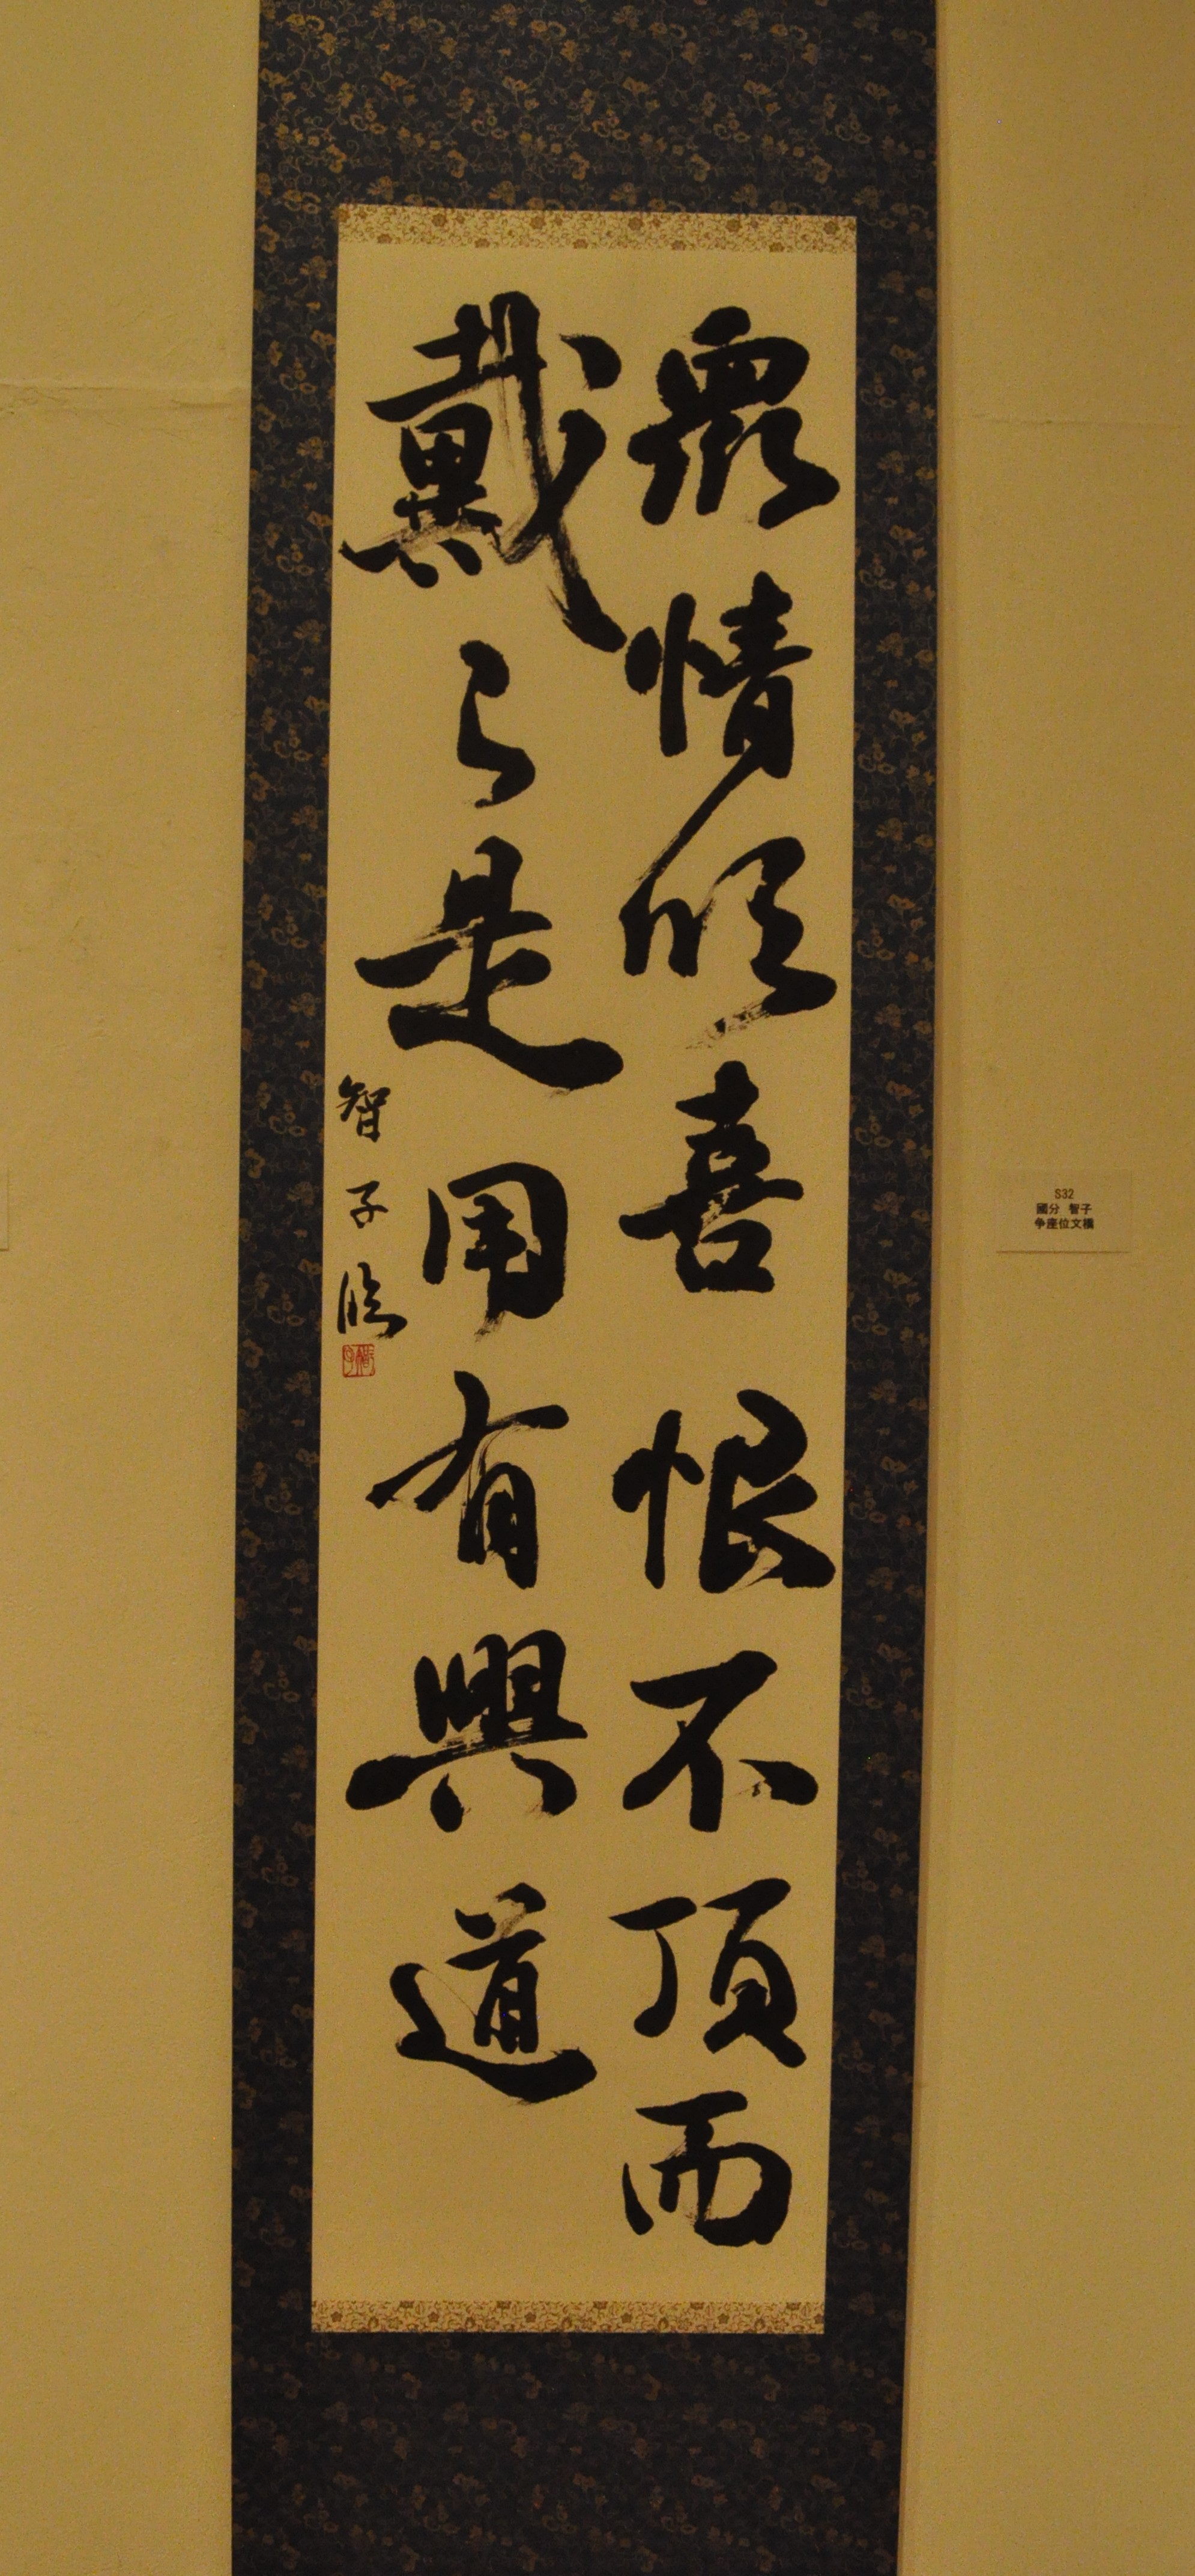 衆情欣喜恨不頂而
戴之是用有興道
智子臨
S32
國分 智子
争座位文稿